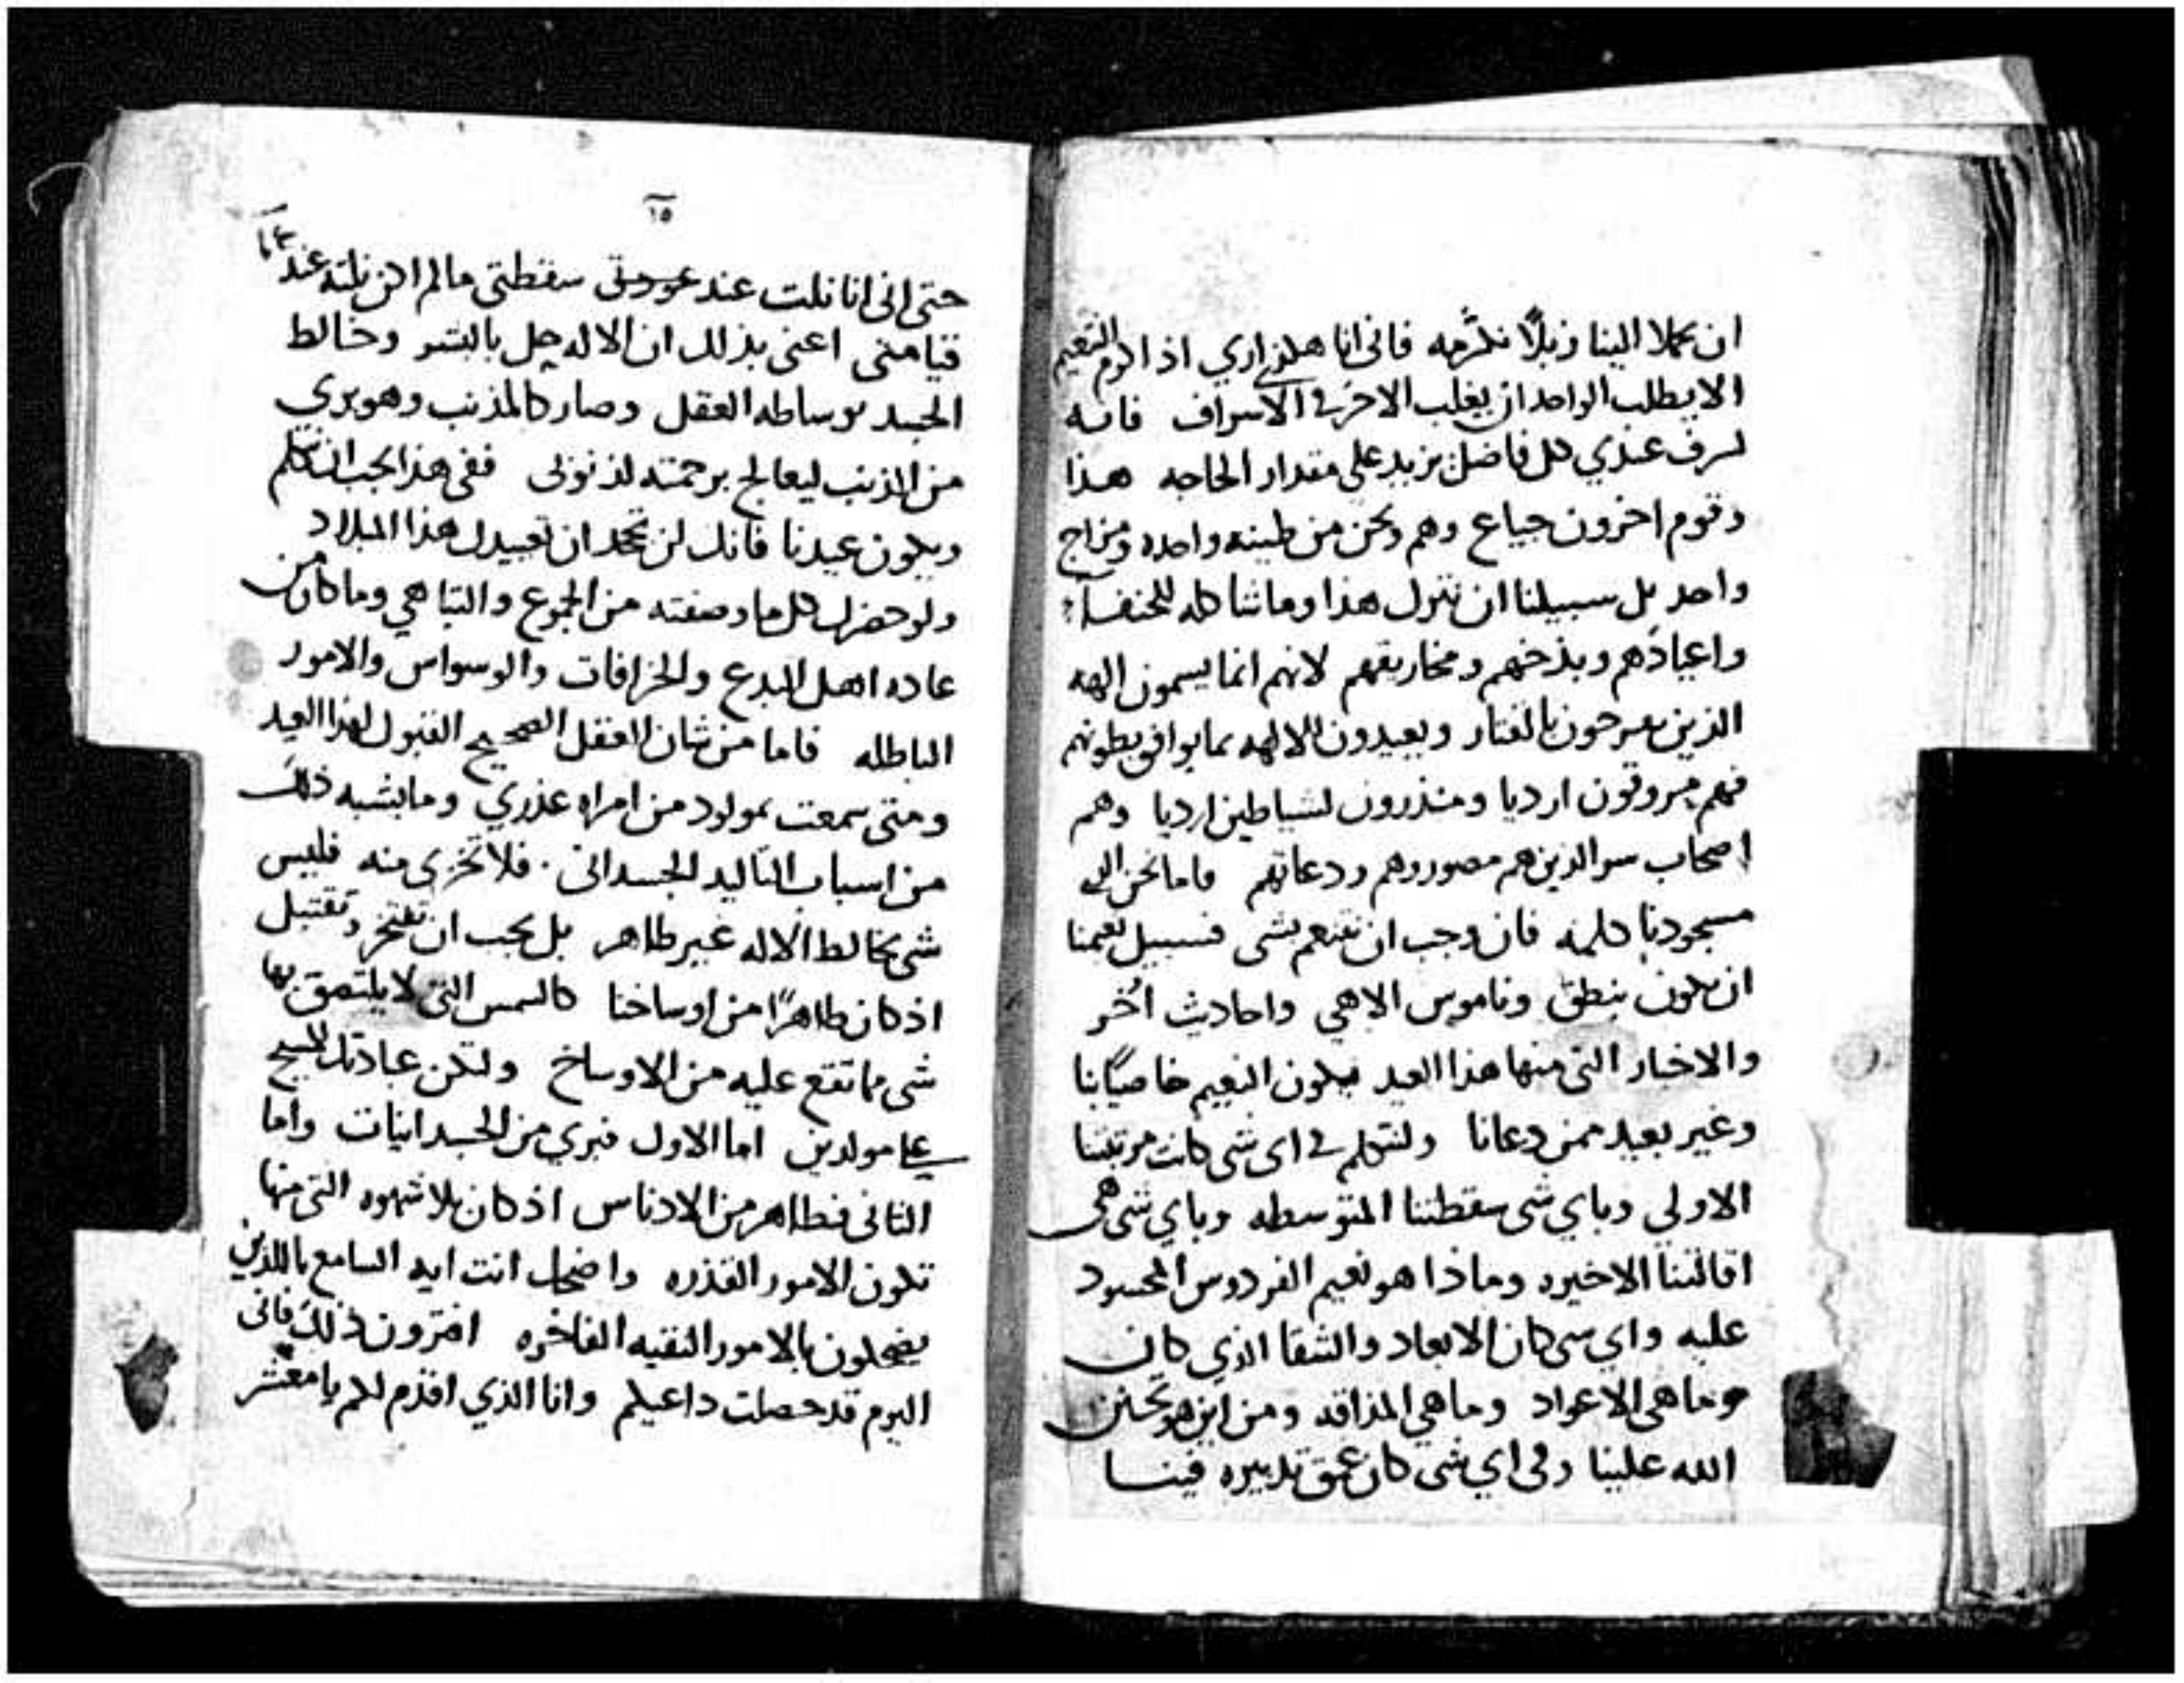 ان يحملا الينا زبلًا نكرمه فانى انا هكذى اري اذ اكرم التنعيم
الا يطلب الواحد ان يغلب الاخر في الاسراف فانه
لسرف عندي كل فاضل يزيد على مقدار الحاجه هذا
وقوم اخرون جياع وهم ونحن من طينه واحده ومزاج
واحد بل سبيلنا ان نترك هذا وماشاكله للحنفاء
واعيادهم وبذخهم ومخاريقهم لانهم انما يسمون الهه
الذين يفرحون بالقتار ويعيدون للالهه بما يوافق بطونهم
فهم مروقون ارديا ومنذرون لشياطين ارديا وهم
اصحاب سر الذين هم مصوروهم ودعاتهم فاما نحن الى
مسجودنا كلمه فان وجب ان نتنعم بشى فسبيل نعمنا
ان تكون بنطق وناموس الاهي واحاديث اخر
والاخبار التى منها هذا العيد فيكون النعيم خاصيًا بنا
وغير بعيد ممن دعانا ولنتكلم في اى شى كانت مرتبتنا
الاولي وباي شى سقطتنا المتوسطه وباي شى هى
اقالتنا الاخيره وماذا هو نعيم الفردوس المحسود
عليه واي شى كان الابعاد والشقا الذي كان
وماهى الاعواد وماهي المذاقه ومن اين هو تحنن
الله علينا وفى اي شى كان عمق تدبيره فينا
١٥
حتى انى انا نلت عند سقطتى مالم اكن نلته عند
قيامتى اعنى بذلك ان الاله حل بالبشر وخالط
الجسد بوساطه العقل وصار كالمذنب وهو بري
من الذنب ليعالج برحمته لذنوبى ففى هذا يجب ان نتكلم
ويكون عيدنا فانك لن تجد ان تعييدك هذا الميلاد
ولو حضرك كل ما وصفته من الجوع والتباهي وما كان من
عاده اهل البدع والخرافات والوسواس والامور
الباطله فاما من شان العقل الصحيح القبول لهذا العيد
ومتى سمعت بمولود من امراه عذري وما يشبه ذلك
من اسباب التاليد الجسدانى فلا تخزى منه فليس
شى يخالط الاله غير طاهر بل يجب ان تفتخر وتقتبل
اذ كان طاهرًا من اوساخنا كالشمس التى لا يلتصق بها
شى مما تقع عليه من الاوساخ ولتكن عبادتك للمسيح
على مولدين اما الاول فبري من الجسدانيات واما
الثانى فطاهر من الادناس اذ كان بلا شهوه التى منها
تكون الامور القذره واضحك انت ايه السامع بالذين
يضحكون بالامور النقيه الفاخره افترون ذلك فانى
اليوم قد حصلت داعيكم وانا الذي اقدم لكم يا معشر